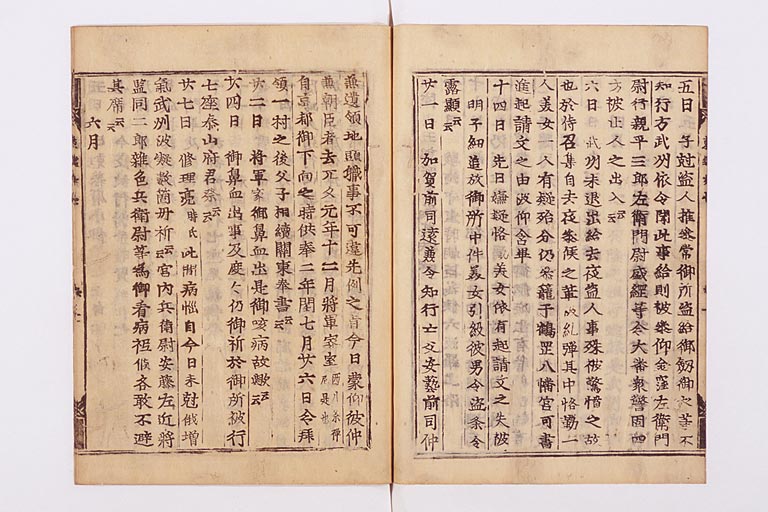 五日　子尅盗人推參常御所盗給御劔御衣等不
知行方武州依令聞此事給則被參仰金窪左衛門
尉行親平三郎左衛門尉盛經等令大番衆警固四
方被止人之出入云云
六日　武州未退出給去夜盗人事殊被驚惜之故
也於侍召集自去夜參候之輩被糺弾其中恪勤一
人美女一人有疑殆分仍參籠于鶴罡八幡宮可書
進起請文之由被仰含畢
十四日　先日嫌疑恪勤美女依有起請文之失被
明子細追放御所中件美女引級彼男令盗參令
露顯云云
廿一日　加賀前司遠兼令知行亡父安藝前司仲
兼遺領地頭職事不可違先例之旨今日蒙仰彼仲
兼朝臣者去元久元年十二月將軍家室西八条禪尼是也
自京都御下向之時供奉二年閏七月廿六日令拜
領一村之後父子相續關東奉書云云
廿二日　將軍家御鼻血出是御咳病故歟云云
廿四日　御鼻血出事及度々仍御祈於御所被行
七座泰山府君祭云云
廿七日　修理亮時氏此間病惱自今日未尅俄増
氣武州被凝數箇祈云云宮内兵衛尉安藤左近將
監同二郎雜色兵衛尉等爲御看病祗候各敢不避
其席云云
六月